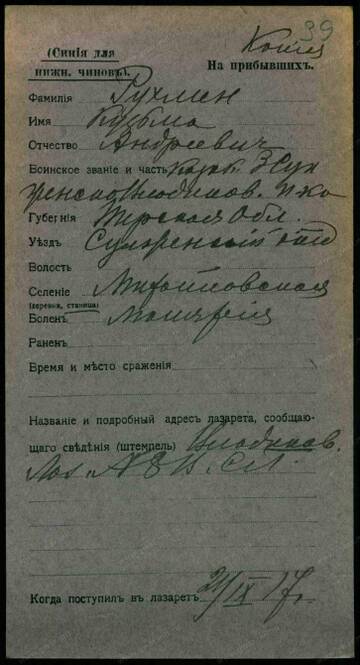 39
(Синія для
нижн. чиновъ).
Копія
На прибывшихъ.
Фамилія Рухмен
Имя Кузьма
Отчество Андреевич
Воинское званіе и часть Казак 3 Сун
женско Владиков. п-ка
Губернія Терская Обл.
Уѣздъ Сунженскій отд
Волость
Селеніе Михайловская
(деревня, станица)
Боленъ Малярія
Раненъ
Время и мѣсто сраженія
Названіе и подробный адресъ лазарета, сообщаю-
щаго свѣдѣнія (штемпель) Владиков.
Когда поступилъ въ лазаретъ 21/IX 17 г.